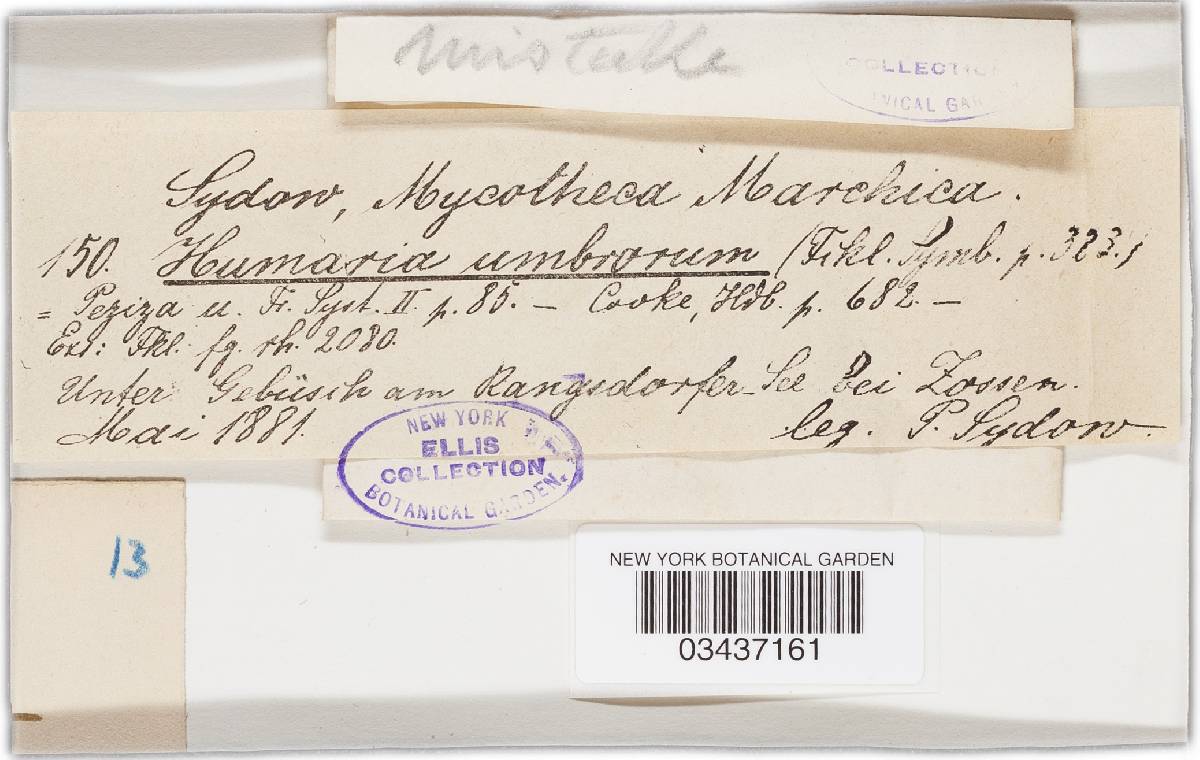 COLLECTION
Sydow, Mycotheca Marchica.
150. Humaria umbrorum (Fckl. Symb. p. 323.)
= Peziza u. Fr. Syst. II p. 85. — Cooke, Hdb. p. 682. —
Exs: Fkl. fg. rh. 2080.
Unter Gebüsch am Rangsdorfer See bei Zossen.
Mai 1881. leg. P. Sydow.
NEW YORK
ELLIS
COLLECTION
BOTANICAL GARDEN.
13
NEW YORK BOTANICAL GARDEN
03437161